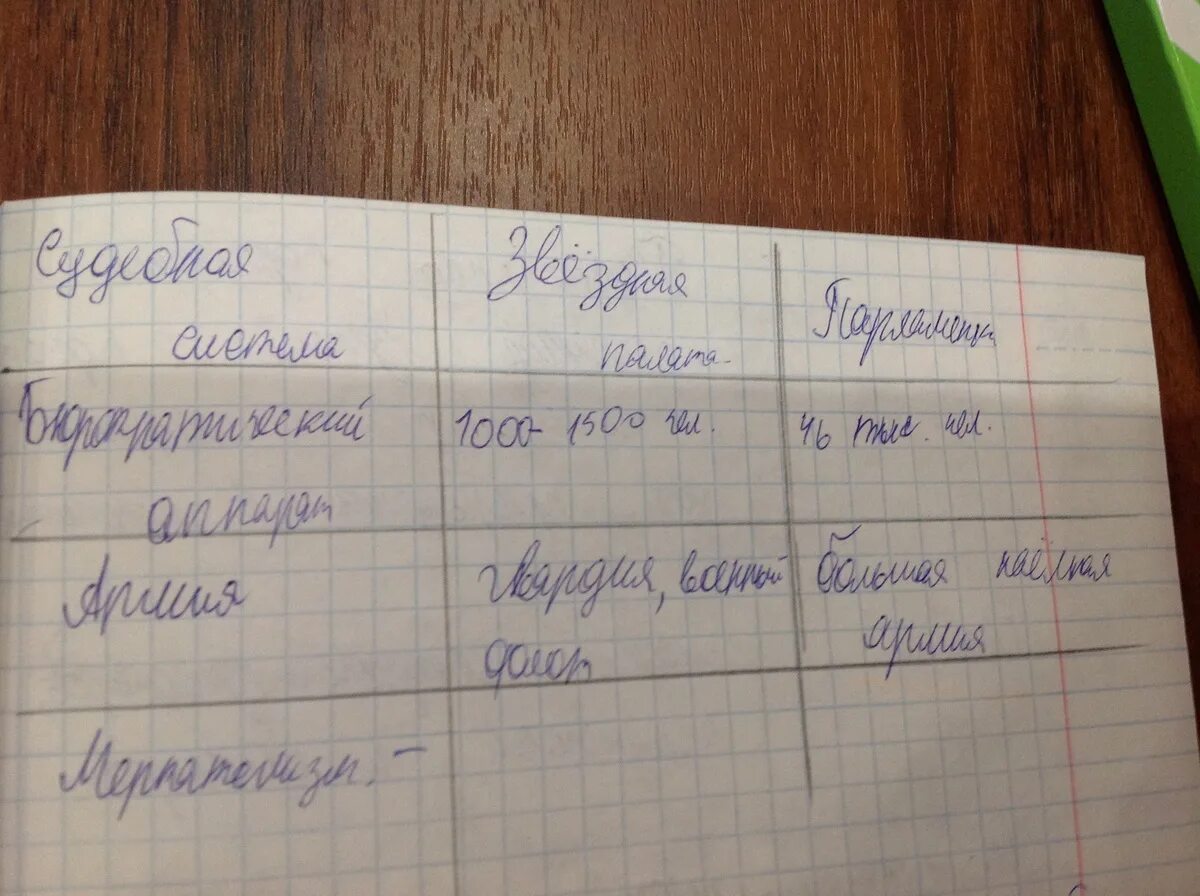 Судебная
система
Звёздная
палата
Парламент
Бюрократический
аппарат
1000-1500 чел.
46 тыс. чел.
Армия
гвардия, военный
флот
Большая наёмная
армия
Меркантилизм. -